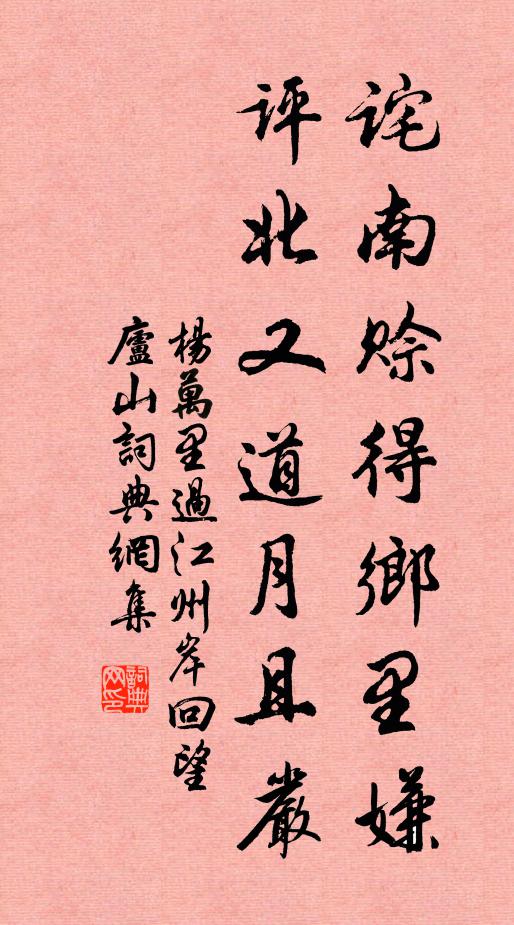 詫南賒得鄉里嫌
評北又道月且嚴
楊萬里過江州岸回望
廬山詞典網集
詞典網印